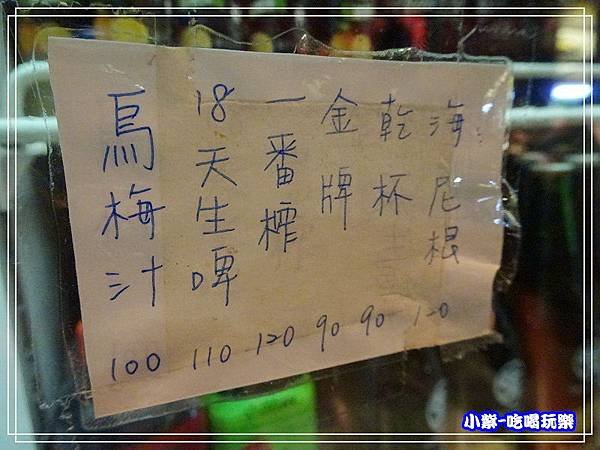 海尼根 120
乾杯 90
金牌 90
一番榨 120
18天生啤 110
烏梅汁 100
小紫-吃喝玩樂